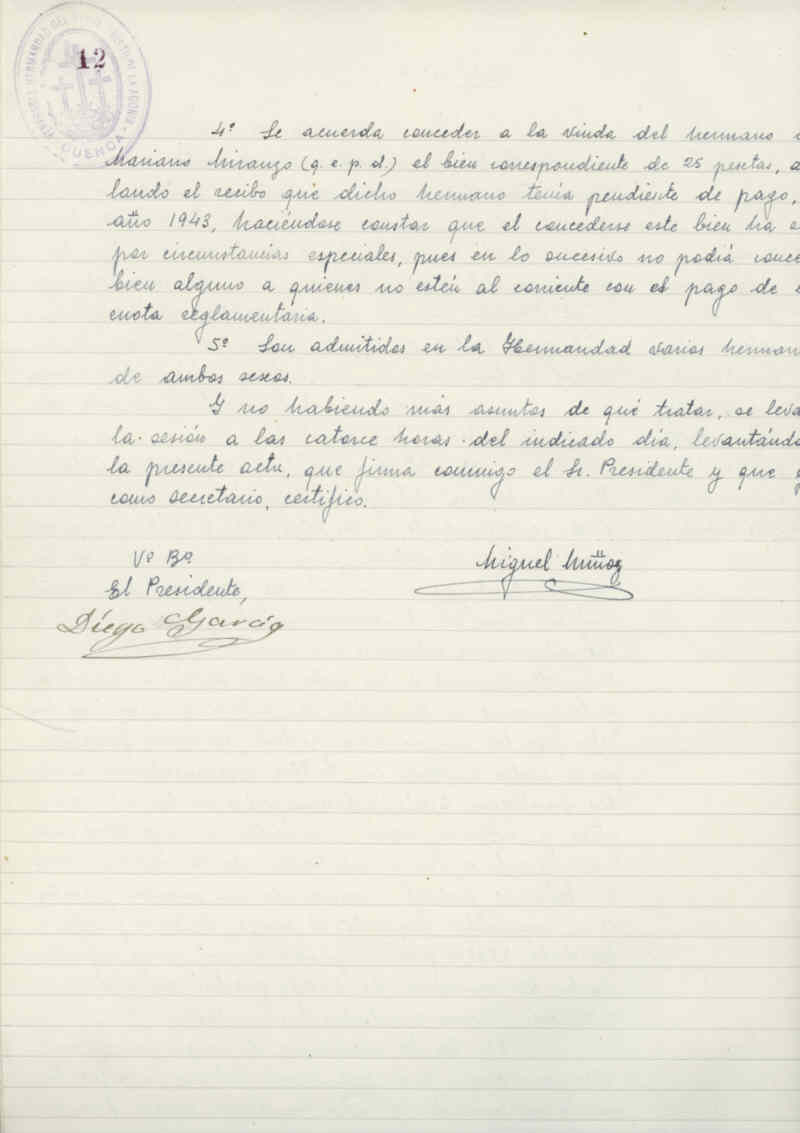 12
CUENCA
4º Se acuerda conceder a la viuda del hermano
Mariano Miranzo (q. e. p. d.) el bien correspondiente de 25 pesetas, a
lando el recibo que dicho hermano tenía pendiente de pago,
año 1943, haciéndose constar que el concederse este bien ha
por circunstancias especiales, pues en lo sucesivo no podrá conce
bien alguno a quienes no estén al corriente con el pago de
cuota reglamentaria.
5º Son admitidos en la Hermandad varios herman
de ambos sexos.
Y no habiendo más asuntos de qué tratar, se leva
la sesión a las catorce horas del indicado día, levantándo
la presente acta, que firma conmigo el Sr. Presidente y que
como secretario, certifico.
Vº Bº
El Presidente,
Miguel Muñoz
Diego García